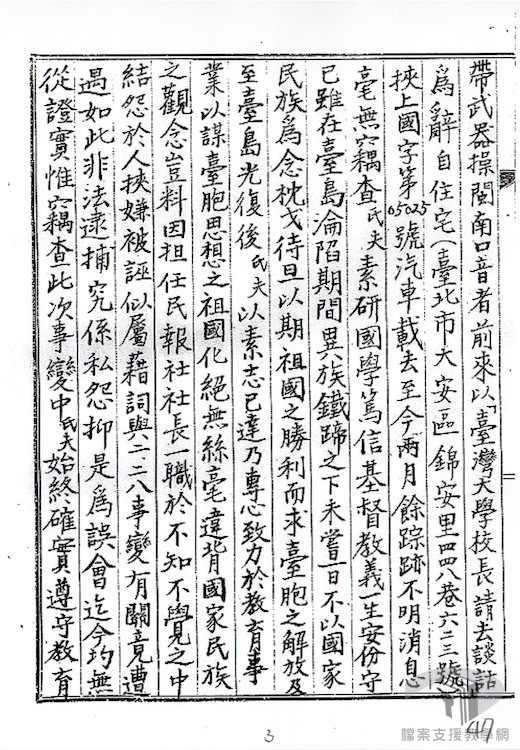 帶武器操閩南口音者前來以「臺灣大學校長請去談話」
為辭自住宅(臺北市大安區錦安里四四八巷六二三號)
挾上國字第05025號汽車載去至今兩月餘踪跡不明消息
毫無竊查氏夫素研國學篤信基督教義一生安份守
己雖在臺島淪陷期間異族鐵蹄之下未嘗一日不以國家
民族為念枕戈待旦以期祖國之勝利而求臺胞之解放及
至臺島光復後氏夫以素志已達乃專心致力於教育事
業以謀臺胞思想之祖國化絕無絲毫違背國家民族
之觀念豈料因担任民報社社長一職於不知不覺之中
結怨於人挾嫌被誣似屬藉詞與二二八事變有關竟遭
遇如此非法逮捕究係私怨抑是為誤會迄今均無
從證實惟竊查此次事變中氏夫始終確實遵守教育
3
47
檔案支援教學網